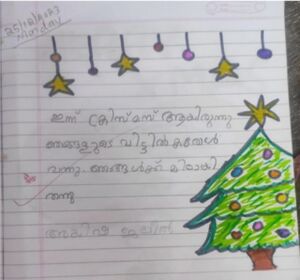 25/12/2023
Monday
ഇന്ന് ക്രിസ്മസ് ആയിരുന്നു.
ഞങ്ങളുടെ വീട്ടിൽ കരോൾ
വന്നു. ഞങ്ങൾക്ക് മിഠായി
തന്നു